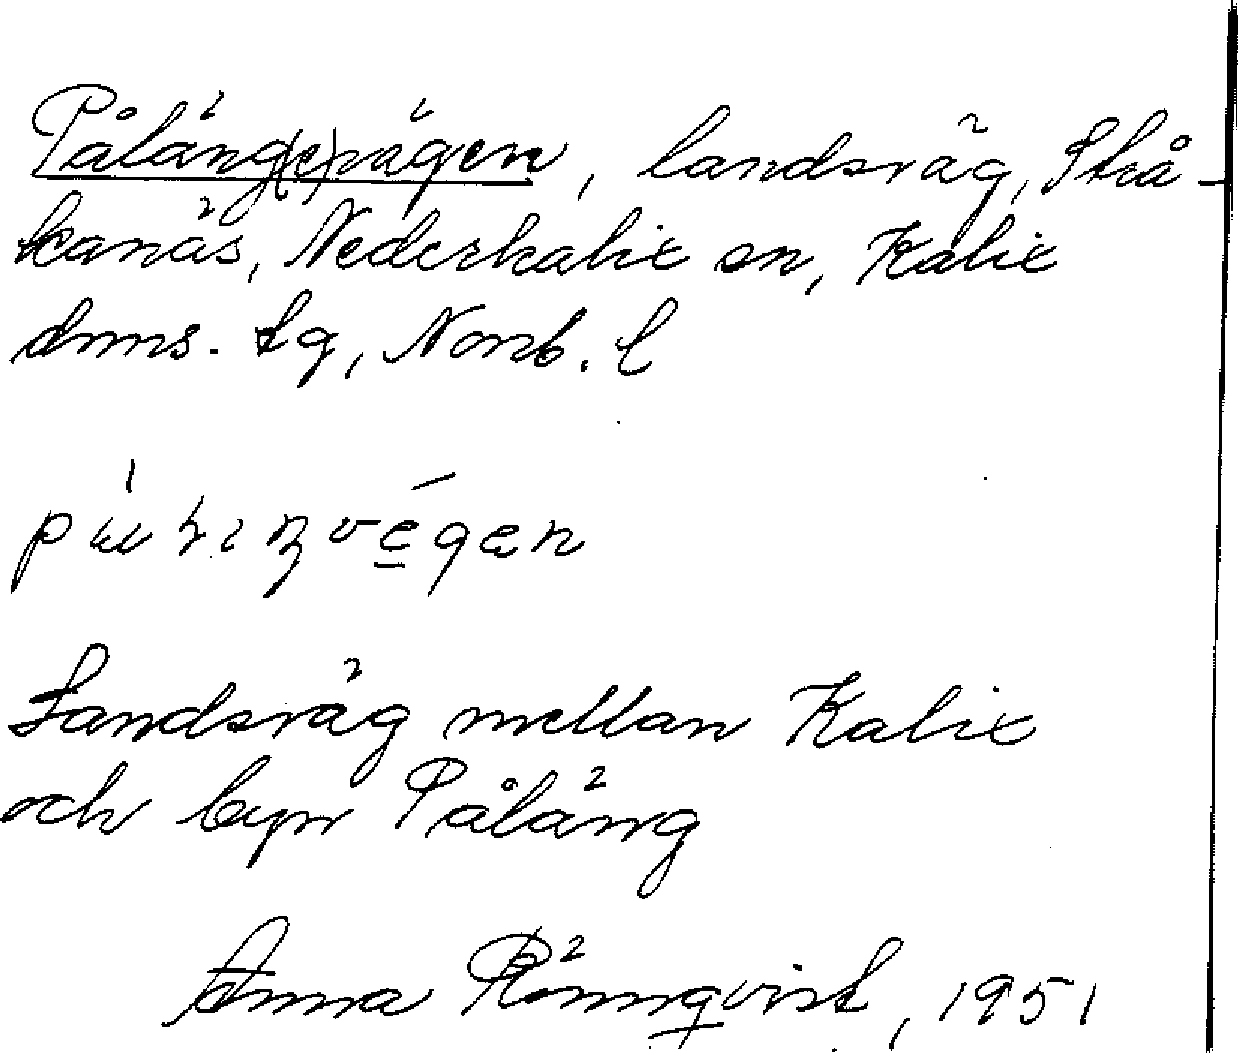 Påläng(e)vägen, landsväg, Strå-
kanäs, Nederkalix sn, Kalix
dms. tg, Norrb. l
Landsväg mellan Kalix
och byn Påläng
Anna Rönnqvist, 1951